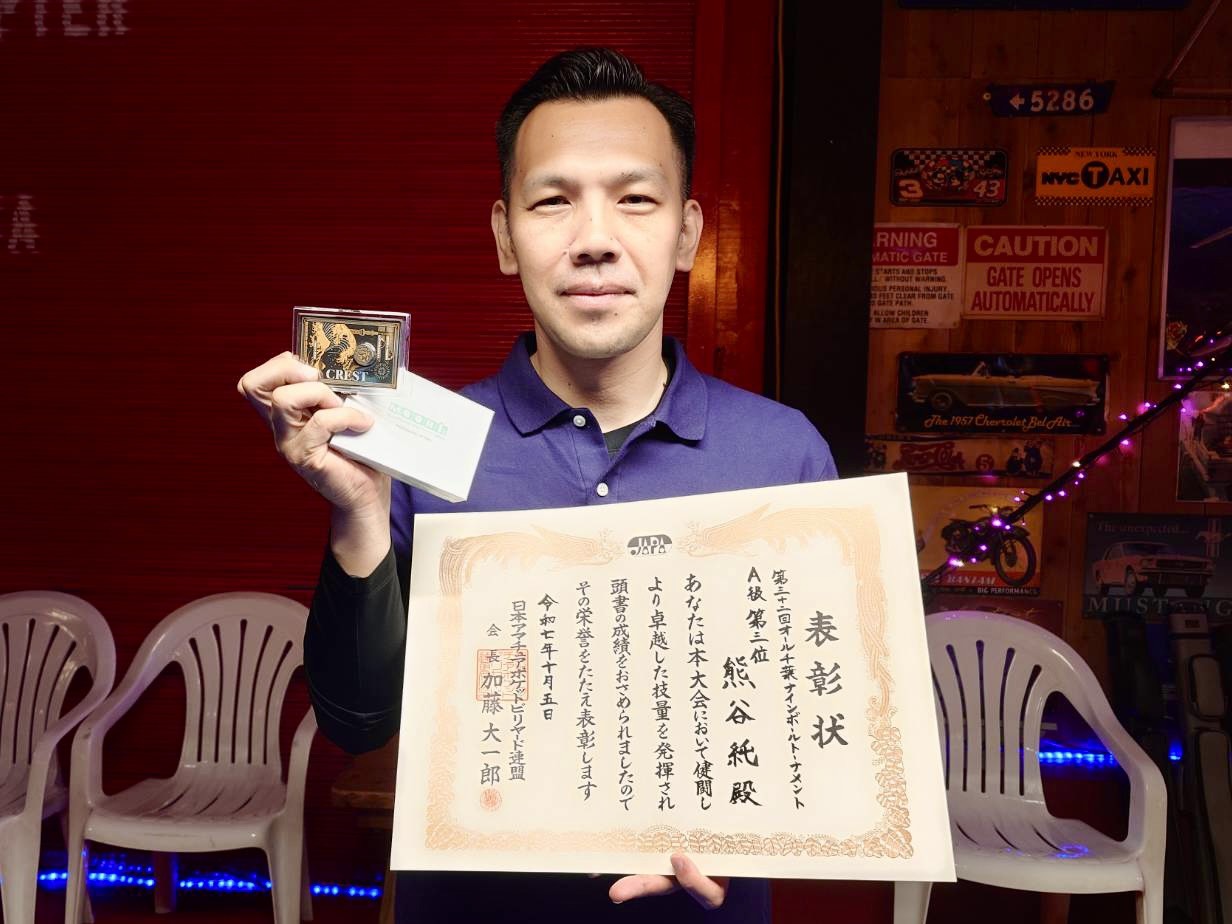 5286
3
43
NEW YORK
NYC TAXI
RNING
MATIC GATE
STARTS AND STOPS
WITHOUT WARNING.
OUS PERSONAL INJURY.
FEET CLEAR FROM GATE
GATE PATH.
ALLOW CHILDREN
IN AREA OF GATE.
CAUTION
GATE OPENS
AUTOMATICALLY
The 1957 Chevrolet Bel Air
5
BANTAM
BIG PERFORMANCE
The unexpected...
MUSTANG
CREST
JAPA
表彰状
第三十二回オール千葉ナインボールトーナメント
A級 第三位
熊谷紙殿
あなたは本大会において健闘し
より卓越した技量を発揮され
頭書の成績をおさめられましたので
その栄誉をたたえ表彰します
令和七年十月五日
日本アマチュアポケットビリヤード連盟
会長 加藤大一郎